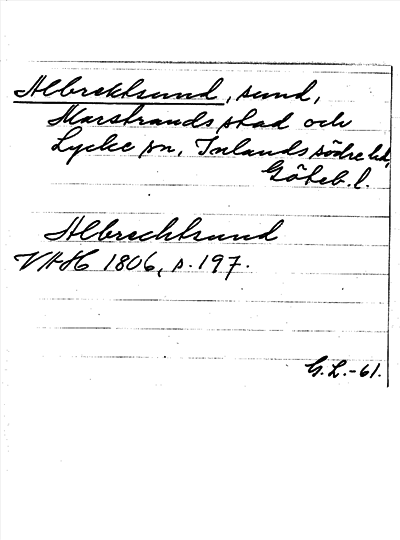 Albrektsund, sund,
Marstrands stad och
Lycke sn, Inlands södre hd,
Göteb. l.
Albrechtsund
VAH 1806, s. 197.
G. L. -61.